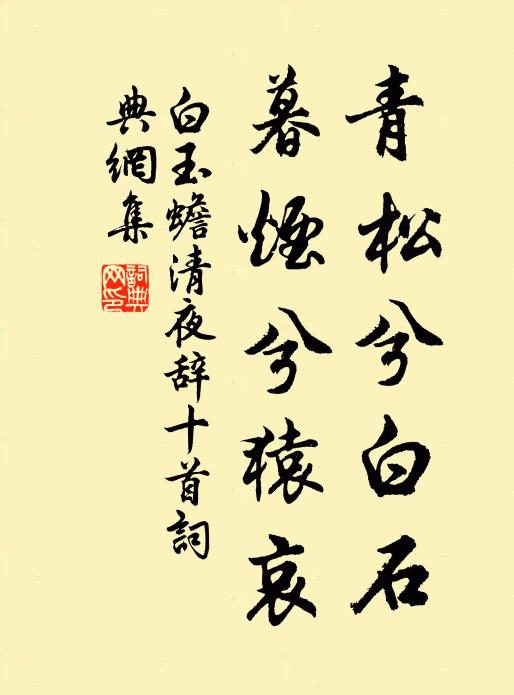 青松兮白石
暮煙兮猿哀
白玉蟾清夜辞十首詞
典網集
詞典网印